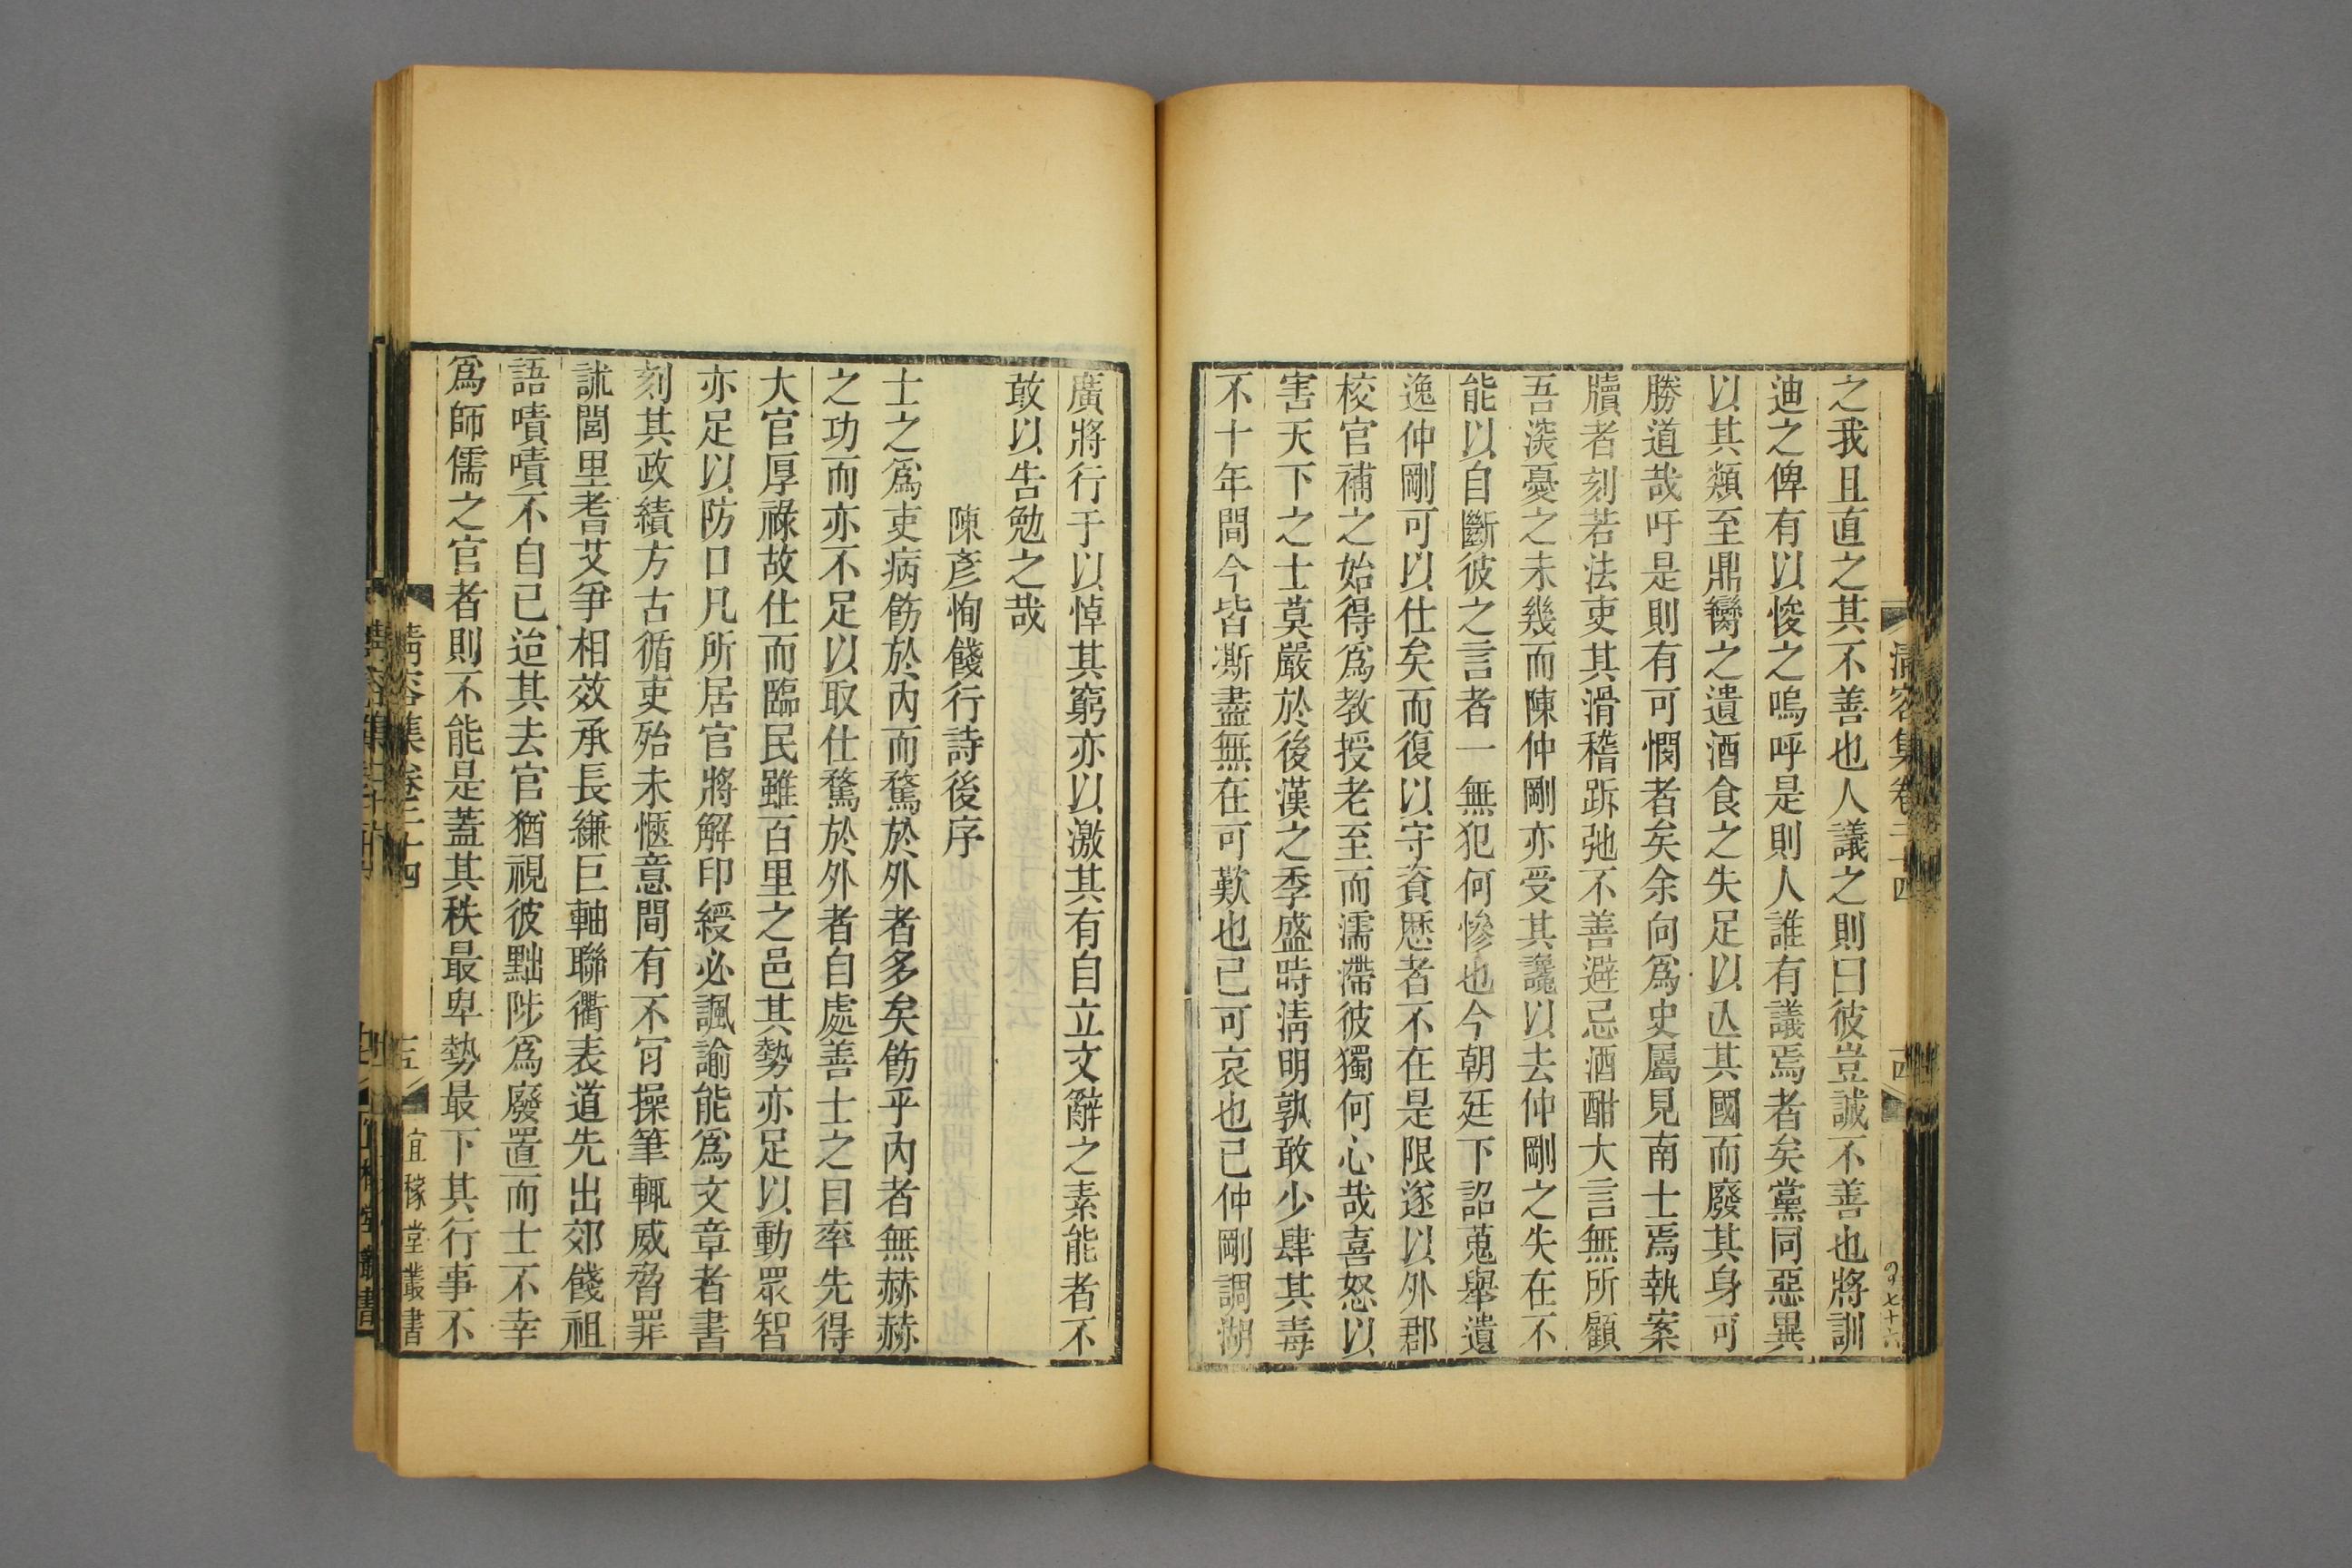 清容集卷二十四
十四
之我且直之其不善也人議之則曰彼豈誠不善也將訓
迪之俾有以悛之嗚呼是則人誰有議焉者矣黨同惡異
以其類至鼎臠之遺酒食之失足以亾其國而廢其身可
勝道哉吁是則有可憫者矣余向爲史屬見南士焉執案
牘者刻若法吏其滑稽跅弛不善避忌酒酣大言無所顧
吾湥憂之未幾而陳仲剛亦受其讒以去仲剛之失在不
能以自斷彼之言者一無犯何慘也今朝廷下詔蒐舉遺
逸仲剛可以仕矣而復以守資歷者不在是限遂以外郡
校官補之始得爲教授老至而濡滯彼獨何心哉喜怒以
害天下之士莫嚴於後漢之季盛時淸明孰敢少肆其毒
不十年間今皆澌盡無在可歎也已可哀也已仲剛調湖
廣將行于以悼其窮亦以激其有自立文辭之素能者不
敢以告勉之哉
陳彥恂餞行詩後序
士之爲吏病飭於內而騖於外者多矣飭乎內者無赫赫
之功而亦不足以取仕騖於外者自處善士之目率先得
大官厚祿故仕而臨民雖百里之邑其勢亦足以動眾智
亦足以防口凡所居官將解印綬必諷諭能爲文章者書
刻其政績方古循吏殆未愜意間有不肎操筆輒威脅罪
訹閭里耆艾爭相效承長縑巨軸聯衢表道先出郊餞祖
語嘖嘖不自已迨其去官猶視彼黜陟爲廢置而士不幸
爲師儒之官者則不能是蓋其秩最卑勢最下其行事不
清容集卷二十四
十五
宜稼堂叢書